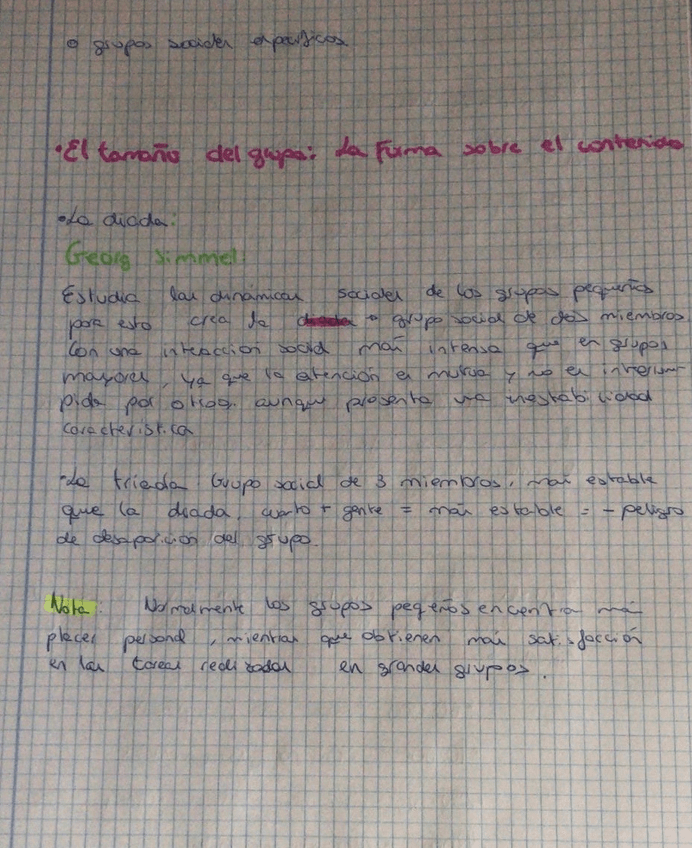 o grupos sociales específicos
•El tamaño del grupo: La Forma sobre el contenido
•La diada:
Georg Simmel:
Estudia las dinámicas sociales de los grupos pequeños
para esto crea la diada → grupo social de dos miembros
Con una interacción social más intensa que en grupos
mayores, ya que la atención es mutua y no es interrum-
pida por otros. aunque presenta una inestabilidad
característica
•La triada: Grupo social de 3 miembros, más estable
que la diada, cuanto + gente = más estable = - peligro
de desaparición del grupo.
Nota: Normalmente los grupos pequeños encontra más
placer personal, mientras que obtienen más satisfacción
en las tareas realizadas en grandes grupos.